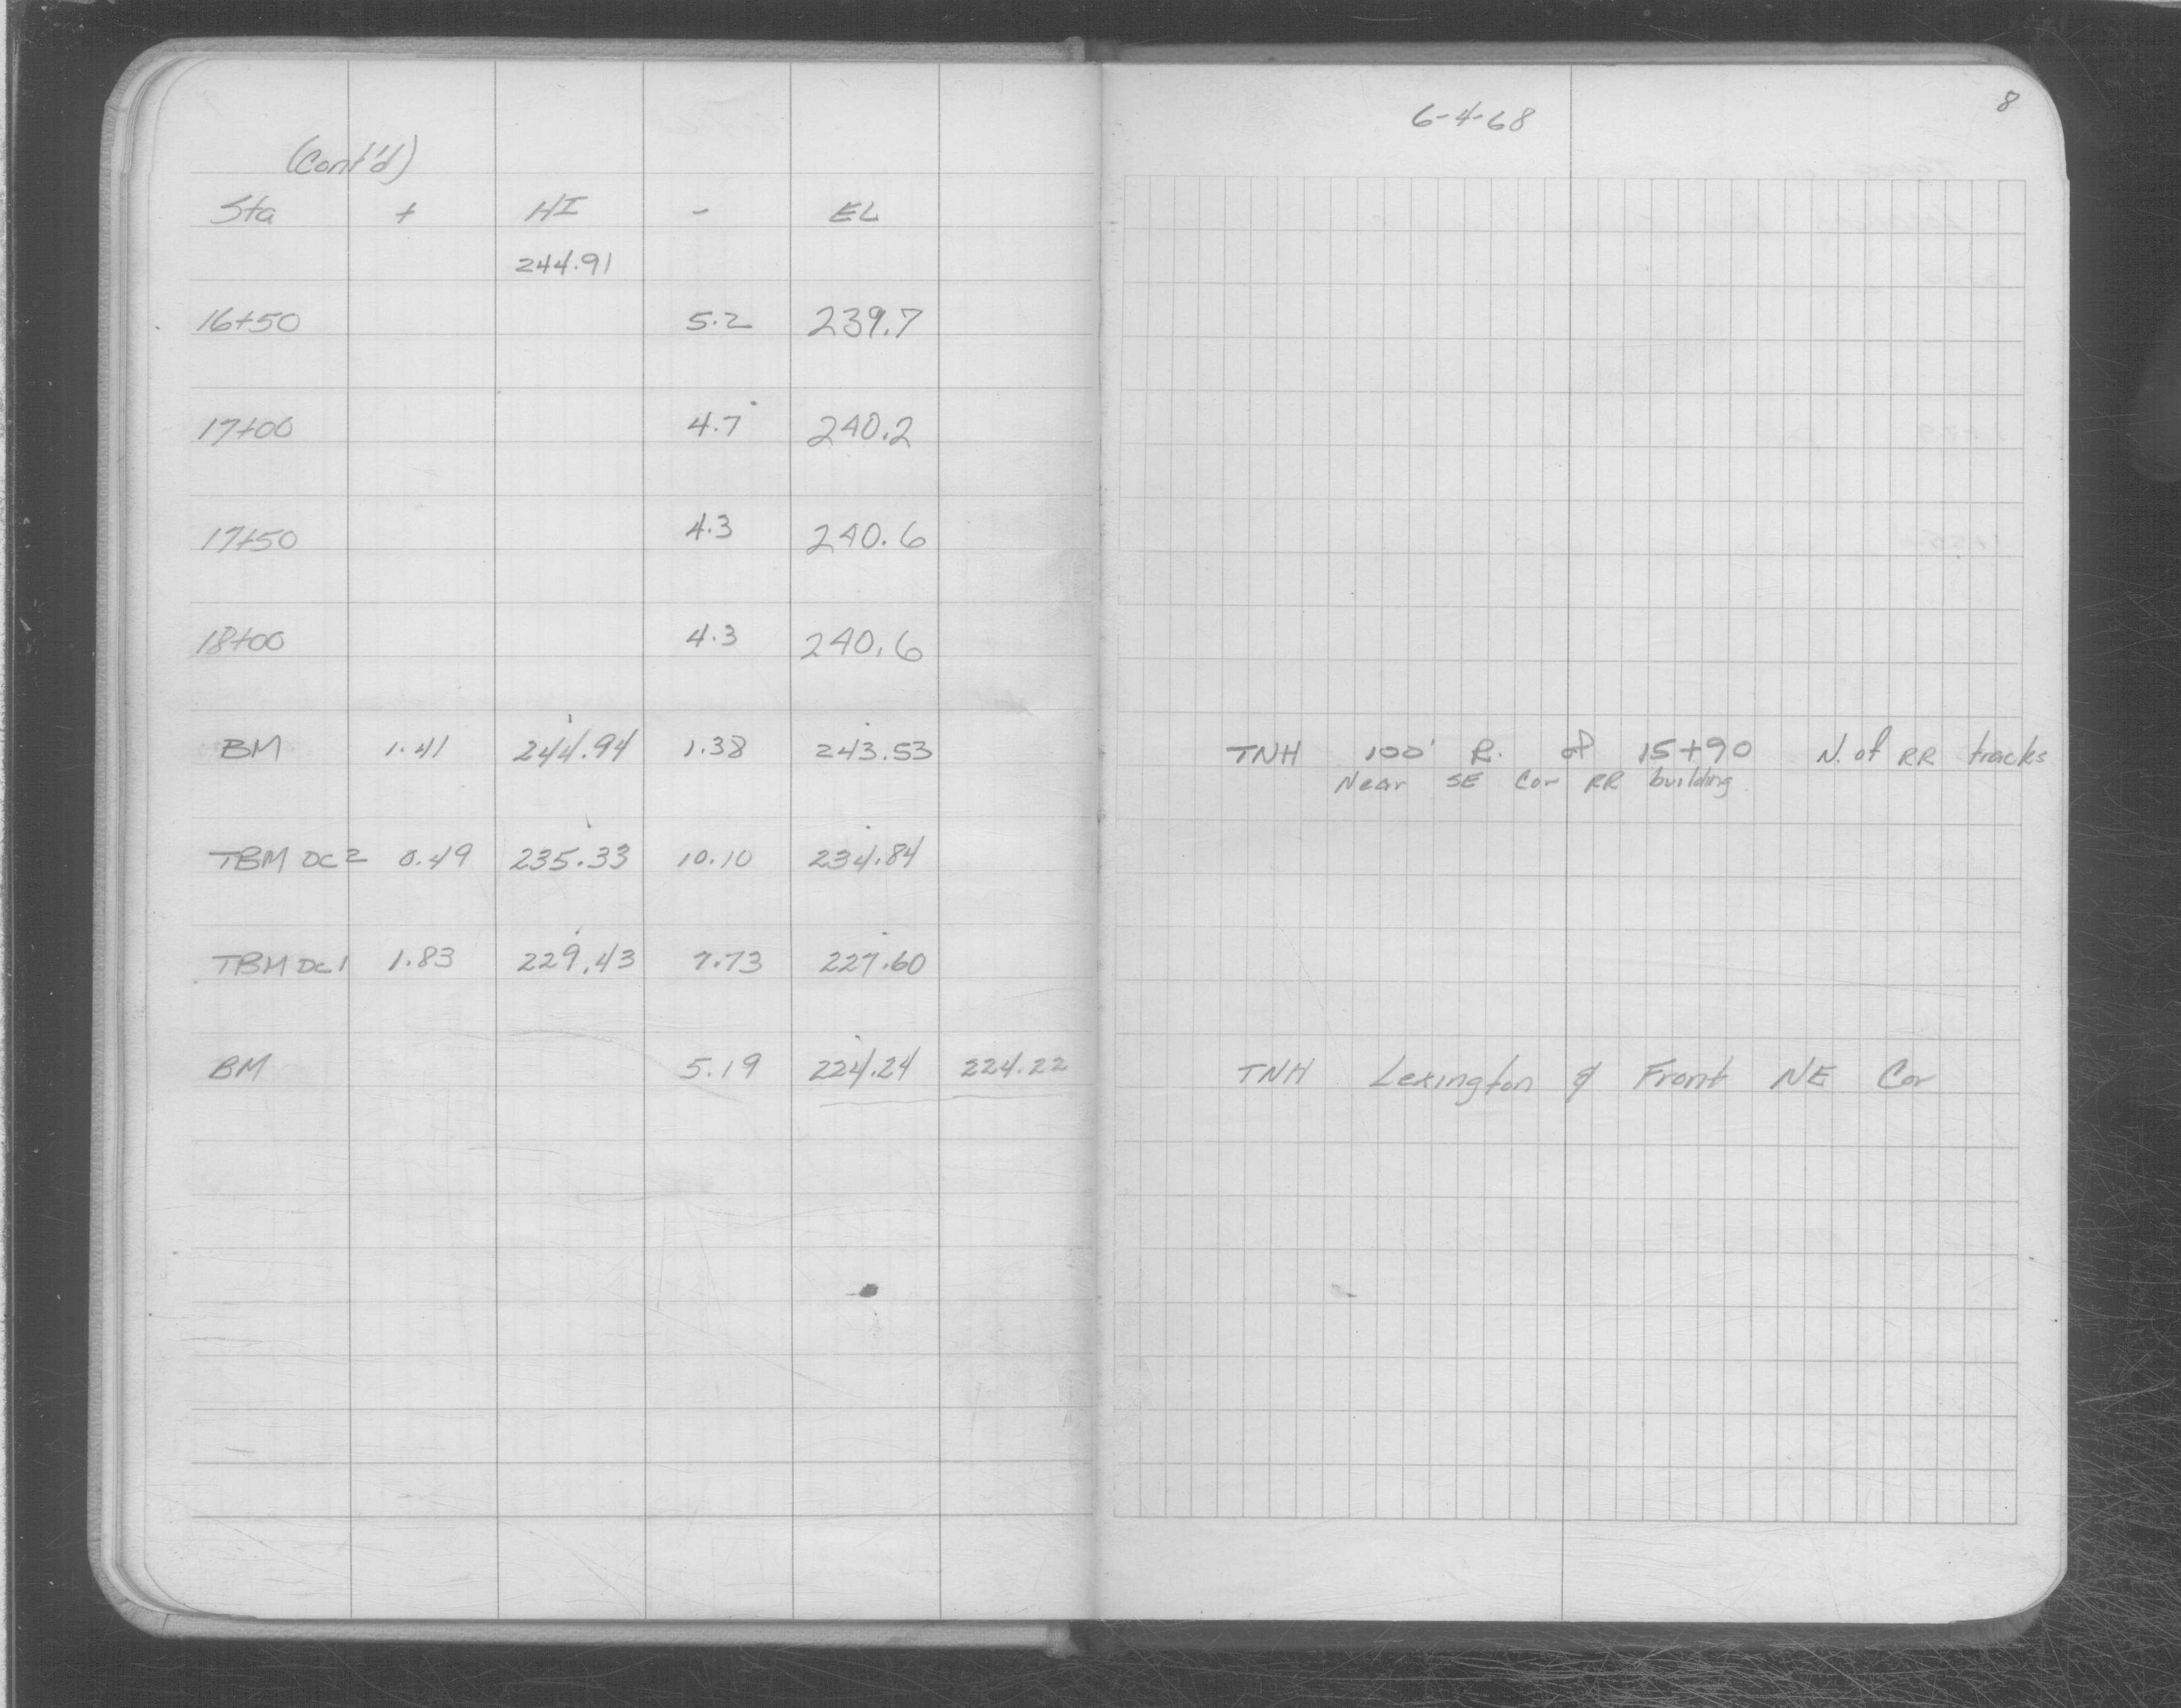 (Cont'd)
Sta + HI - EL
244.91
16+50 5.2 239.7
17+00 4.7 240.2
17+50 4.3 240.6
18+00 4.3 240.6
BM 1.41 244.94 1.38 243.53
TBM DC2 0.49 235.33 10.10 234.84
TBM DC1 1.83 229.43 7.73 227.60
BM 5.19 224.24 224.22
6-4-68
8
TNH 100' R. of 15+90 N. of RR tracks
Near SE Cor RR building
TNH Lexington & Front NE Cor